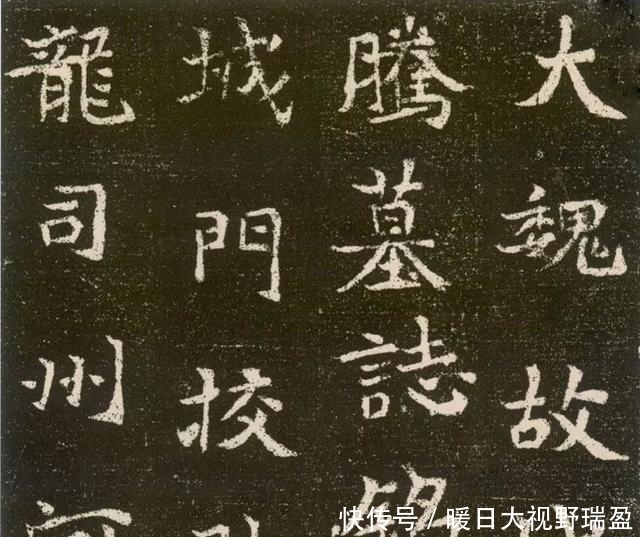 大魏故
騰墓誌銘
城門挍
龍司州河
快传号/暖日大视野瑞盈